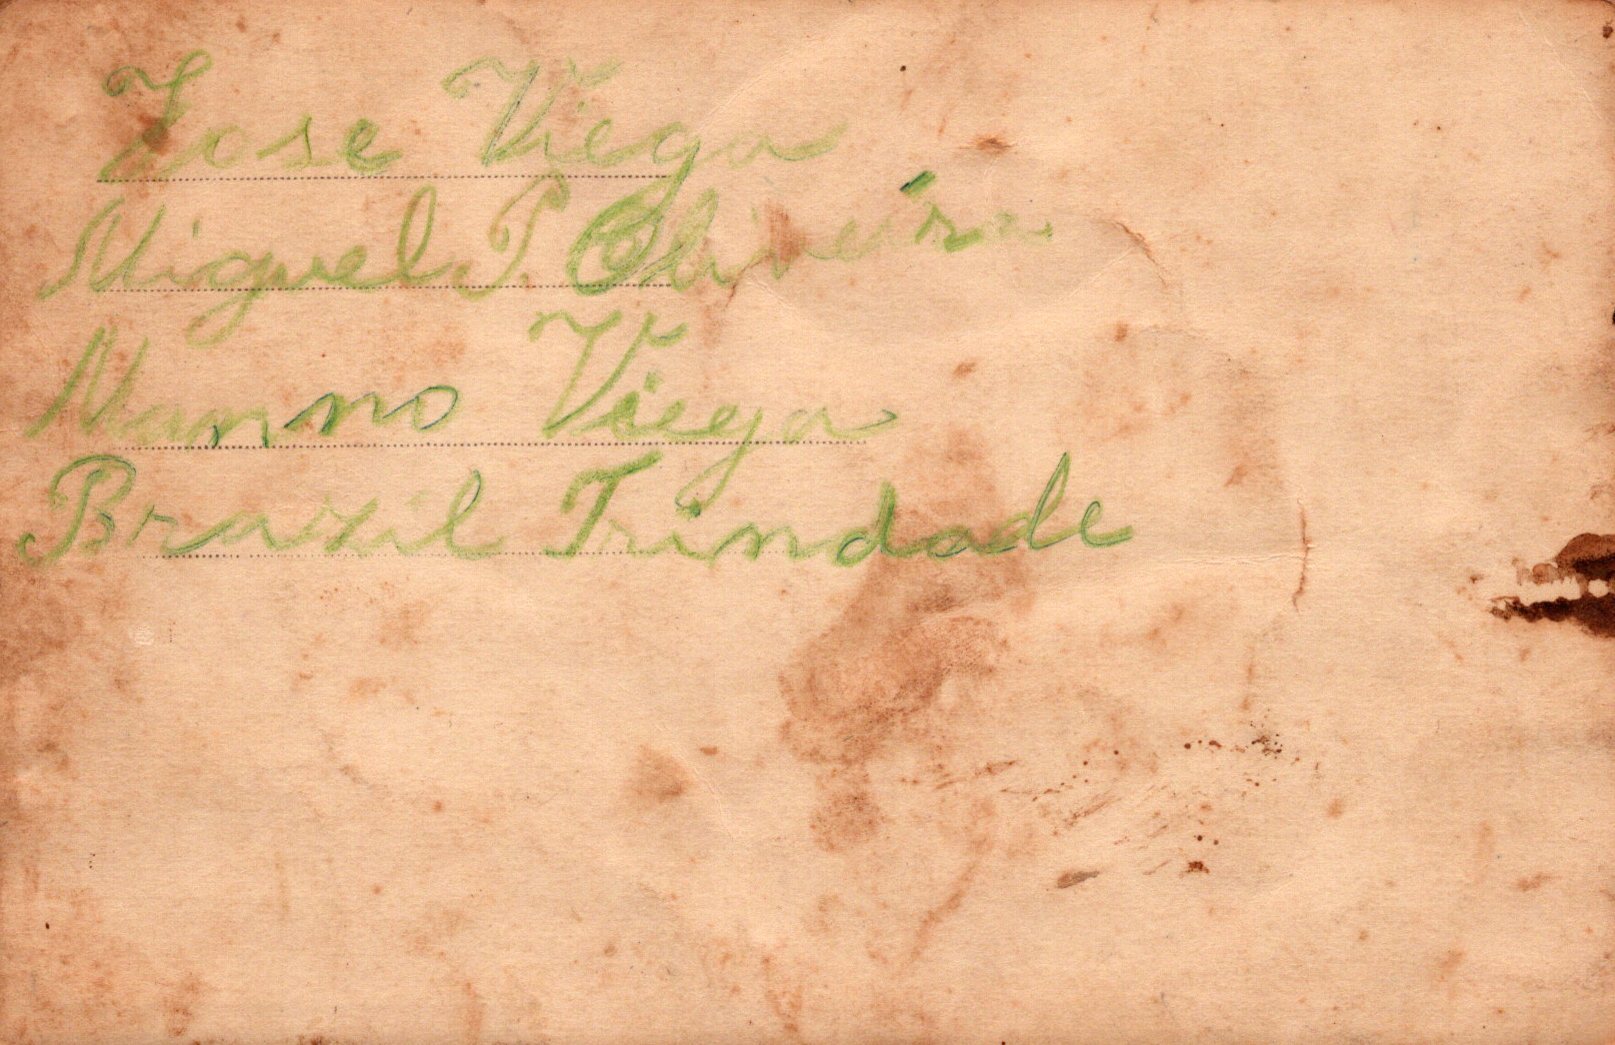 Jose Viega
Miguel P. Oliveira
Manno Viega
Brazil Trindade